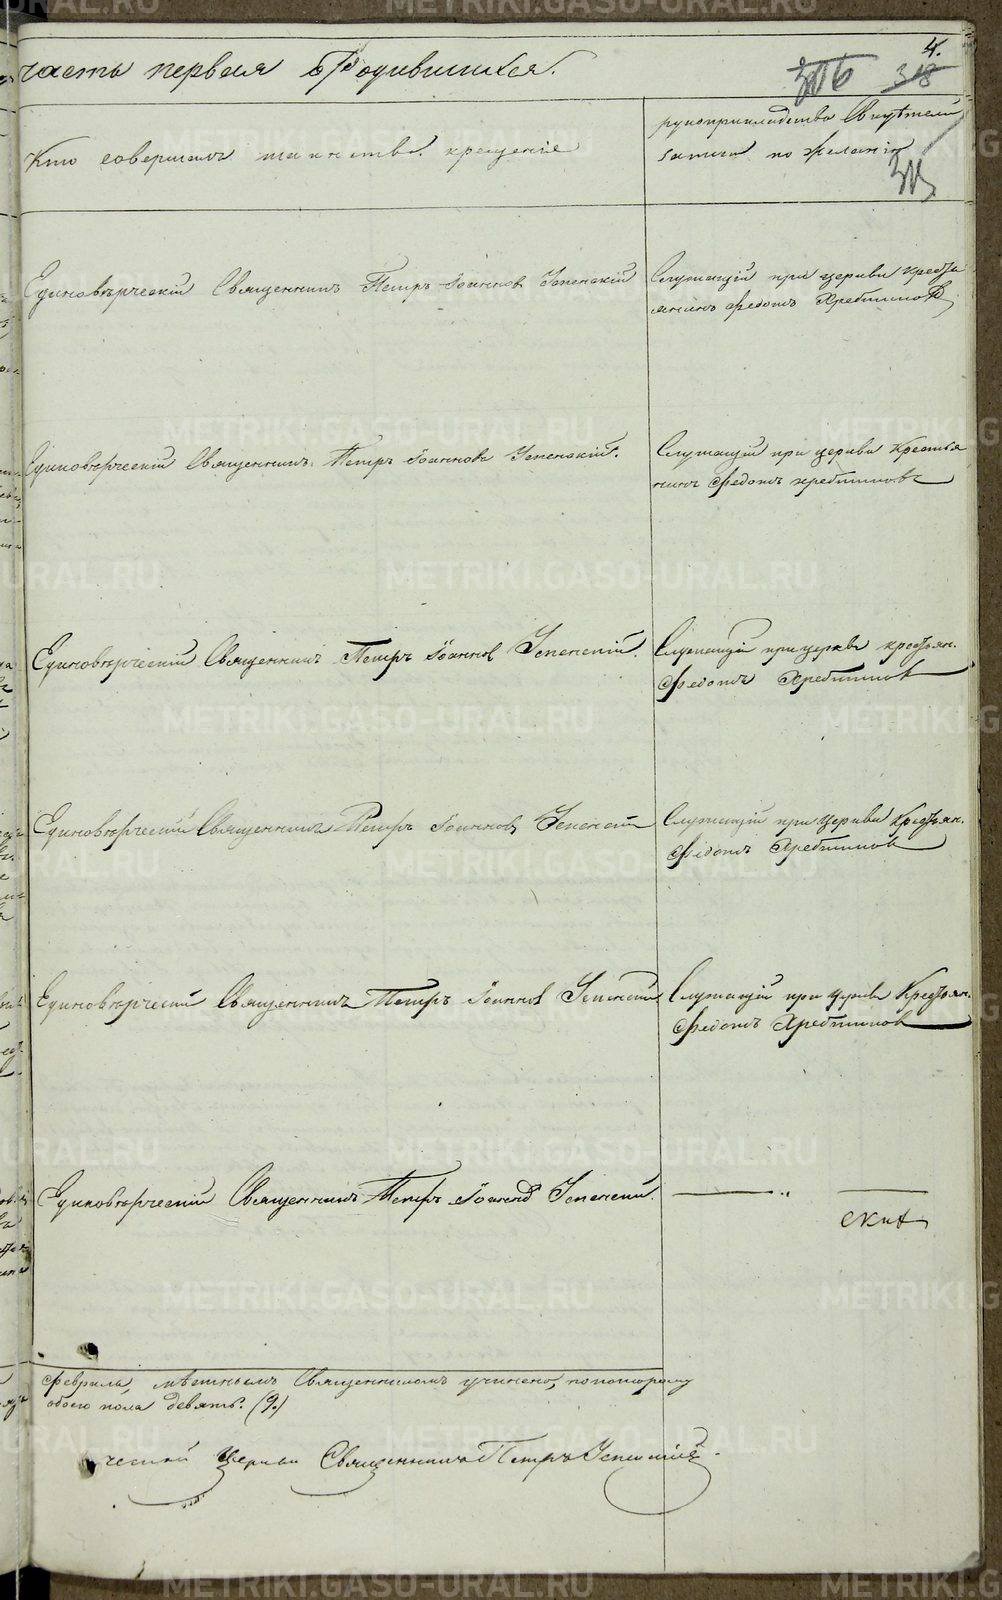 4.
часть первая о родившихся. 306 318
Кто совершалъ таинство крещенiе
рукоприкладство свидѣтелей
записи по желанiю
Единовѣрческiй Священникъ Петръ Iоанновъ Успенскiй
Служащiй при церкви крестья
янинъ Федотъ Хребтиковъ
Единовѣрческiй Священникъ Петръ Iоанновъ Успенскiй.
Служащiй при церкви крестья
нинъ Федотъ Хребтиковъ
Единовѣрческiй Священникъ Петръ Iоаннов Успенскiй.
Служащiй при церкви крестьян.
Федотъ Хребтиковъ
Единовѣрческiй Священникъ Петръ Iоанновъ Успенскiй
Служащiй при церкви крестьян.
Федотъ Хребтиковъ
Единовѣрческiй Священникъ Петръ Iоаннов Успенскiй
Служащiй при церкви Крестьян.
Федотъ Хребтиковъ
Единовѣрческiй Священникъ Петръ Iоаннов Успенскiй.
февраль, мѣстнымъ Священникомъ учинено, по которому
обоего пола девять. (9.)
ческой Церкви Священникъ Петръ Успенскiй.
METRIKI.GASO-URAL.RU